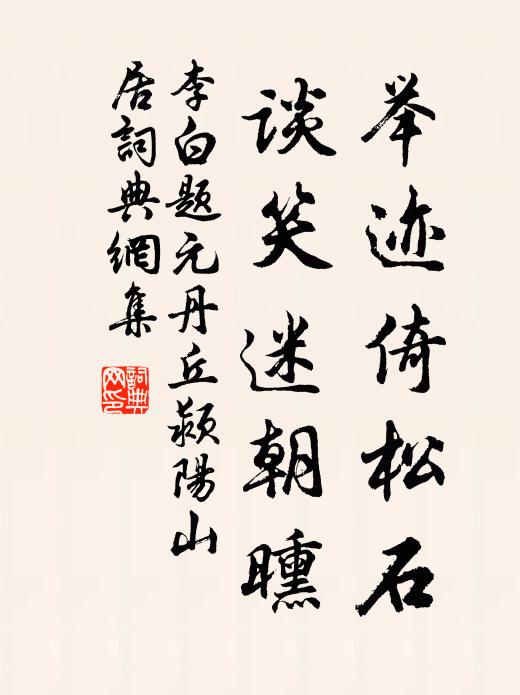 举迹倚松石
谈笑迷朝曛
李白题元丹丘颍陽山
居詞典網集
詞典
网印